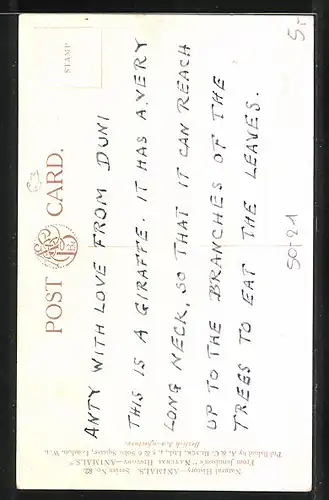 POST CARD.
STAMP
ANTY WITH LOVE FROM DUNI
THIS IS A GIRAFFE. IT HAS A VERY
LONG NECK, SO THAT IT CAN REACH
UP TO THE BRANCHES OF THE
TREES TO EAT THE LEAVES.
5,-
50-21
Natural History—ANIMALS. Series No. 82.
From Jenkinson's "NATURAL HISTORY—ANIMALS."
Published by A. & C. BLACK, Ltd., 4, 5 & 6 Soho Square, London, W.
British Manufacture.